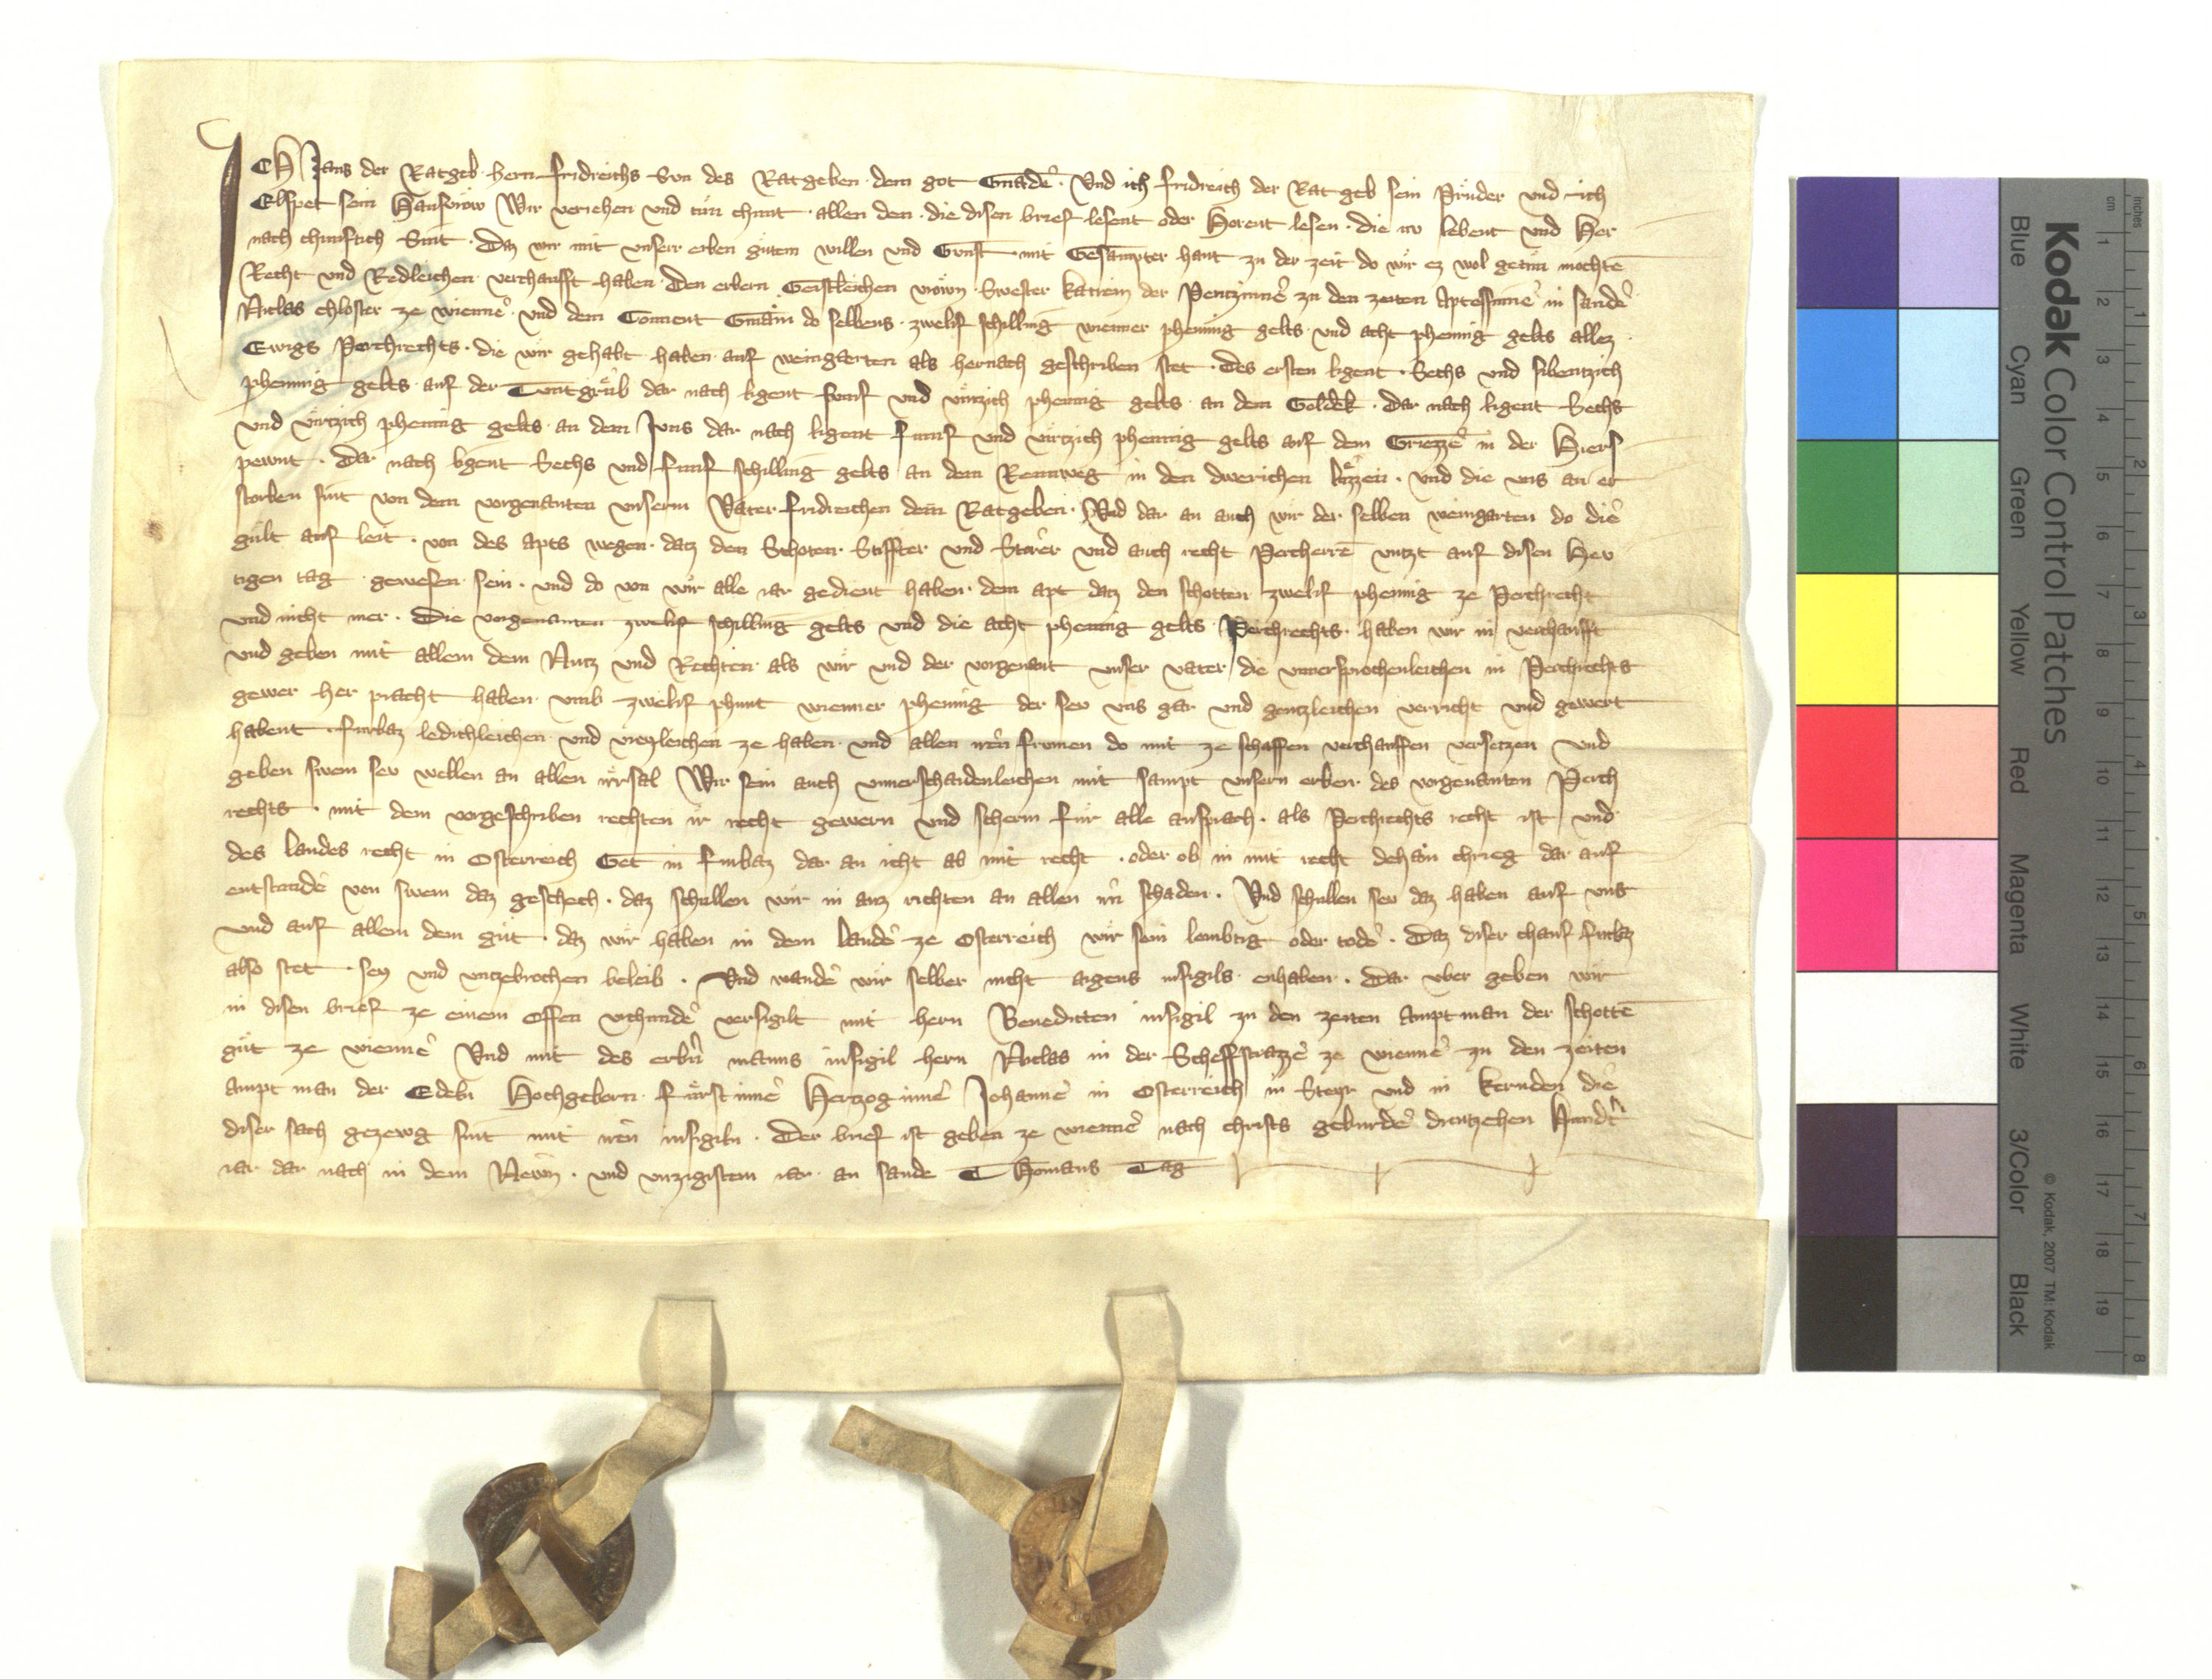 ICH Jans der Ratgeb hern Fridreichs Sun des Ratgeben dem got Gnade · Vnd ich Fridreich der Ratgeb sein Průder vnd ich
Elspet sein Hausvrow Wir veriehen vnd tun chunt · allen den · die disen brief lesent oder Horent lesen · die nv lebent vnd Her
nach chunftich Sint · Daz wir mit vnserr erben gůtem willen vnd Gunst mit Gesampter hant zu der zeit do wir ez wol getun mochten
Recht vnd Redleichen verchaufft haben · Den erbern Geistleichen vrown Swester katrein der Pentzinne zu den zeiten Aptessinne in sande
Niclas chloster ze wienne · vnd dem Conuent Gmain do selbens · zwelif schilling wienner phening gelts vnd acht phening gelts allez
Ewigs Perchrechts · die wir gehabt haben auf weingarten als hernach geschriben stet · Des ersten ligent · Sechs vnd sibentzich
phenning gelts auf der Tontgrůb dar nach ligent funf vnd virtzich phennig gelts an dem Goldek · Dar nach ligent Sechs
vnd virtzich phennig gelts an dem Juns dar nach ligent funf vnd virtzich phennig gelts auf dem Griezze in der Hiers
pewnt · Dar nach ligent Sechs vnd funf schilling gelts an dem Rennweg in den dwerichen luzzen · vnd die vns an er
storben sint von dem vorgenanten vnserm Vater Fridreichen dem Ratgeben · Vnd dar an auch wir der selben weingarten do die
gult auf leit · von des apts wegen datz den Schoten Stiffter vnd Storer vnd auch recht Percherren vntzt auf disen hew
tigen tag gewesen sein · vnd do von wir alle iar gedient haben · dem apt datz den schotten zwelif phennig ze Perchrecht
vnd nicht mer · Die vorgenanten zwelif schilling gelts vnd die acht phennig gelts Perchrechts · haben wir in verchaufft
vnd geben mit allem dem Nutz vnd Rechten als wir vnd der vorgenant vnser vater die vnuersprochenleichen in Perchrechts
gewer her pracht haben vmb zwelif phunt wienner phennig der sev vns gar vnd gentzleichen verricht vnd gewert
habent · furbaz ledichleichen vnd vreyleichen ze haben vnd allen iren frumen do mit ze schaffen verchauffen versetzen vnd
geben swem sev wellen an allen irrsal Wir sein auch vnuerschaidenleichen mit sampt vnsern erben des vorgenanten Perch
rechts · mit dem vorgeschriben rechten ir recht gewern vnd scherm fur alle ansprach · als Perchrechts recht ist vnd
des landes recht in Osterreich Get in furbaz dar an icht ab mit recht · oder ob in mit recht dehain chrieg dar auf
entstunde von swem daz geschech · daz schullen wir in auz richten an allen irn schaden · Vnd schullen sev daz haben auf vns
vnd auf allem dem gut · daz wir haben in dem Lande ze Osterreich wir sein lembtig oder tode · Daz diser chauf furbaz
also stet sey vnd vntzebrochen beleib · Vnd wande wir selber nicht aigens insigils enhaben · Dar vber geben wir
in disen brief ze einem Offen vrchunde versigilt mit hern Benedicten insigil zu den zeiten amptman der schotten
gut ze wienne Vnd mit des erbern manns insigil hern Niclas in der Scheffstrazze ze wienne zu den zeiten
ampt man der Edeln Hochgeborn Furstinne Hertzoginne Johanne in Osterreich in Steyr vnd in kernden die
diser sach gezewg sint mit iren insigiln · Der brief ist geben ze wienne nach christs geburde drewtzehen Hundert
iar dar nach in dem Newn · vnd virtzigistem iar an sande Thomans Tag
Kodak Color Control Patches
Blue Cyan Green Yellow Red Magenta White 3/Color Black
© Kodak, 2007 TM: Kodak
cm 1 2 3 4 5 6 7 8 9 10 11 12 13 14 15 16 17 18 19
inches 1 2 3 4 5 6 7 8